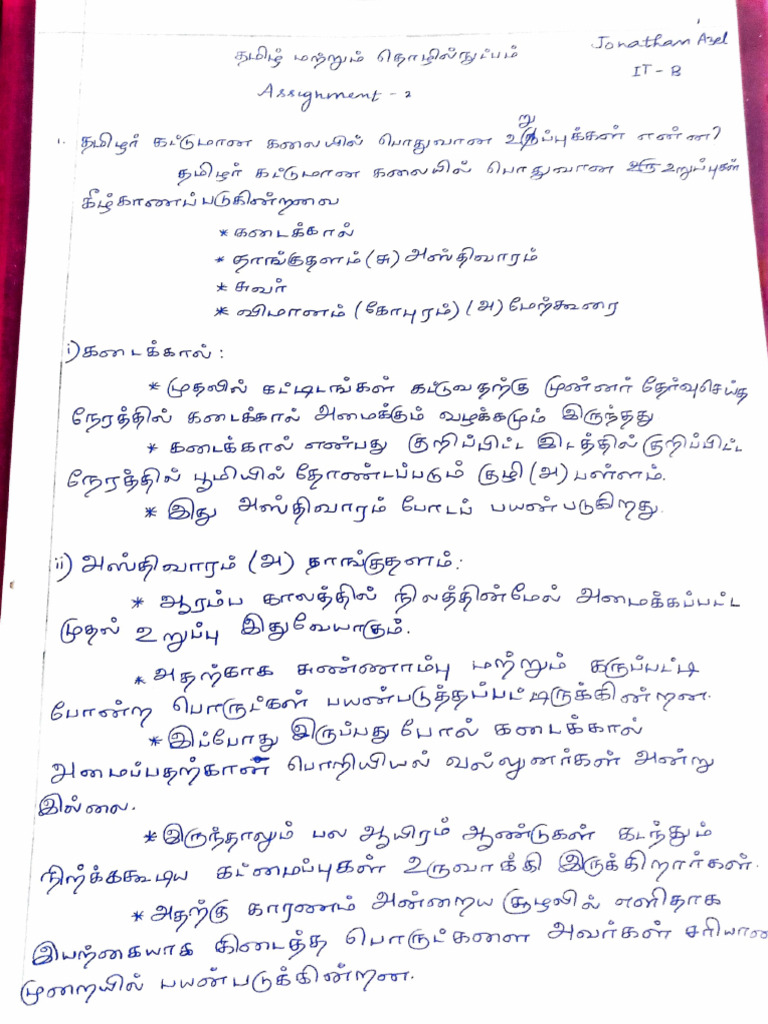 Jonathan Azel
தமிழ் மற்றும் தொழில்நுட்பம்
IT - B
Assignment - 2
1. தமிழர் கட்டுமான கலையில் பொதுவான உறுப்புக்கள் என்ன?
தமிழர் கட்டுமான கலையில் பொதுவான உறுப்புகள்
கீழ்காணப்படுகின்றவை
* கடைக்கால்
* தாங்குதளம் (சு) அஸ்திவாரம்
* சுவர்
* விமானம் (கோபுரம்) (அ) மேற்கூரை
i) கடைக்கால் :
* முதலில் கட்டிடங்கள் கட்டுவதற்கு முன்னர் தேர்வுசெய்த
நேரத்தில் கடைக்கால் அமைக்கும் வழக்கமும் இருந்தது
* கடைக்கால் என்பது குறிப்பிட்ட இடத்தில் குறிப்பிட்ட
நேரத்தில் பூமியில் தோண்டப்படும் குழி (அ) பள்ளம்.
* இது அஸ்திவாரம் போடப் பயன்படுகிறது.
ii) அஸ்திவாரம் (அ) தாங்குதளம் :
* ஆரம்ப காலத்தில் நிலத்தின்மேல் அமைக்கப்பட்ட
முதல் உறுப்பு இதுவேயாகும்.
* அதற்காக சுண்ணாம்பு மற்றும் கருப்பட்டி
போன்ற பொருட்கள் பயன்படுத்தப்பட்டிருக்கின்றன.
* இப்போது இருப்பது போல் கடைக்கால்
அமைப்பதற்கான பொறியியல் வல்லுனர்கள் அன்று
இல்லை.
* இருந்தாலும் பல ஆயிரம் ஆண்டுகள் கடந்தும்
நிற்க்ககூடிய கட்மைப்புகள் உருவாக்கி இருக்கிறார்கள்.
* அதற்கு காரணம் அன்றைய சூழலில் எளிதாக
இயற்கையாக கிடைத்த பொருட்களை அவர்கள் சரியான
முறையில் பயன்படுக்கின்றன.